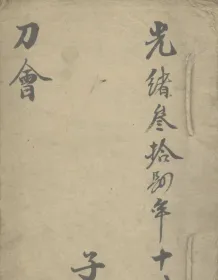 光緒叁拾肆年十
子
刀會